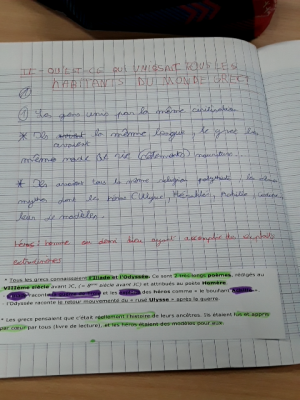 II - QU'EST-CE QUI UNISSAIT TOUS LES
HABITANTS DU MONDE GREC?
① Les grecs unis par la même civilisation
* Ils avaient la même langue, le grec les
même mode de vie (vêtements) nourriture.
* Ils avaient tous la même religion polythéiste, les mêmes
mythes dont les héros (Ulysse, Héraklès, Achille,
leur de modèles.
Héros: homme ou demi dieu ayant accompli des exploits
extraordinaires
* Tous les grecs connaissaient l'Iliade et l'Odyssée. Ce sont 2 très longs poèmes, rédigés au
VIIIème siècle avant JC, (= 8ème siècle avant JC) et attribués au poète Homère.
raconte et les des héros comme « le bouillant
- l'Odyssée raconte le retour mouvementé du « rusé Ulysse » après la guerre
* Les grecs pensaient que c'était réellement l'histoire de leurs ancêtres. Ils étaient lus et appris
par cœur par tous (livre de lecture), et les héros étaient des modèles pour eux.